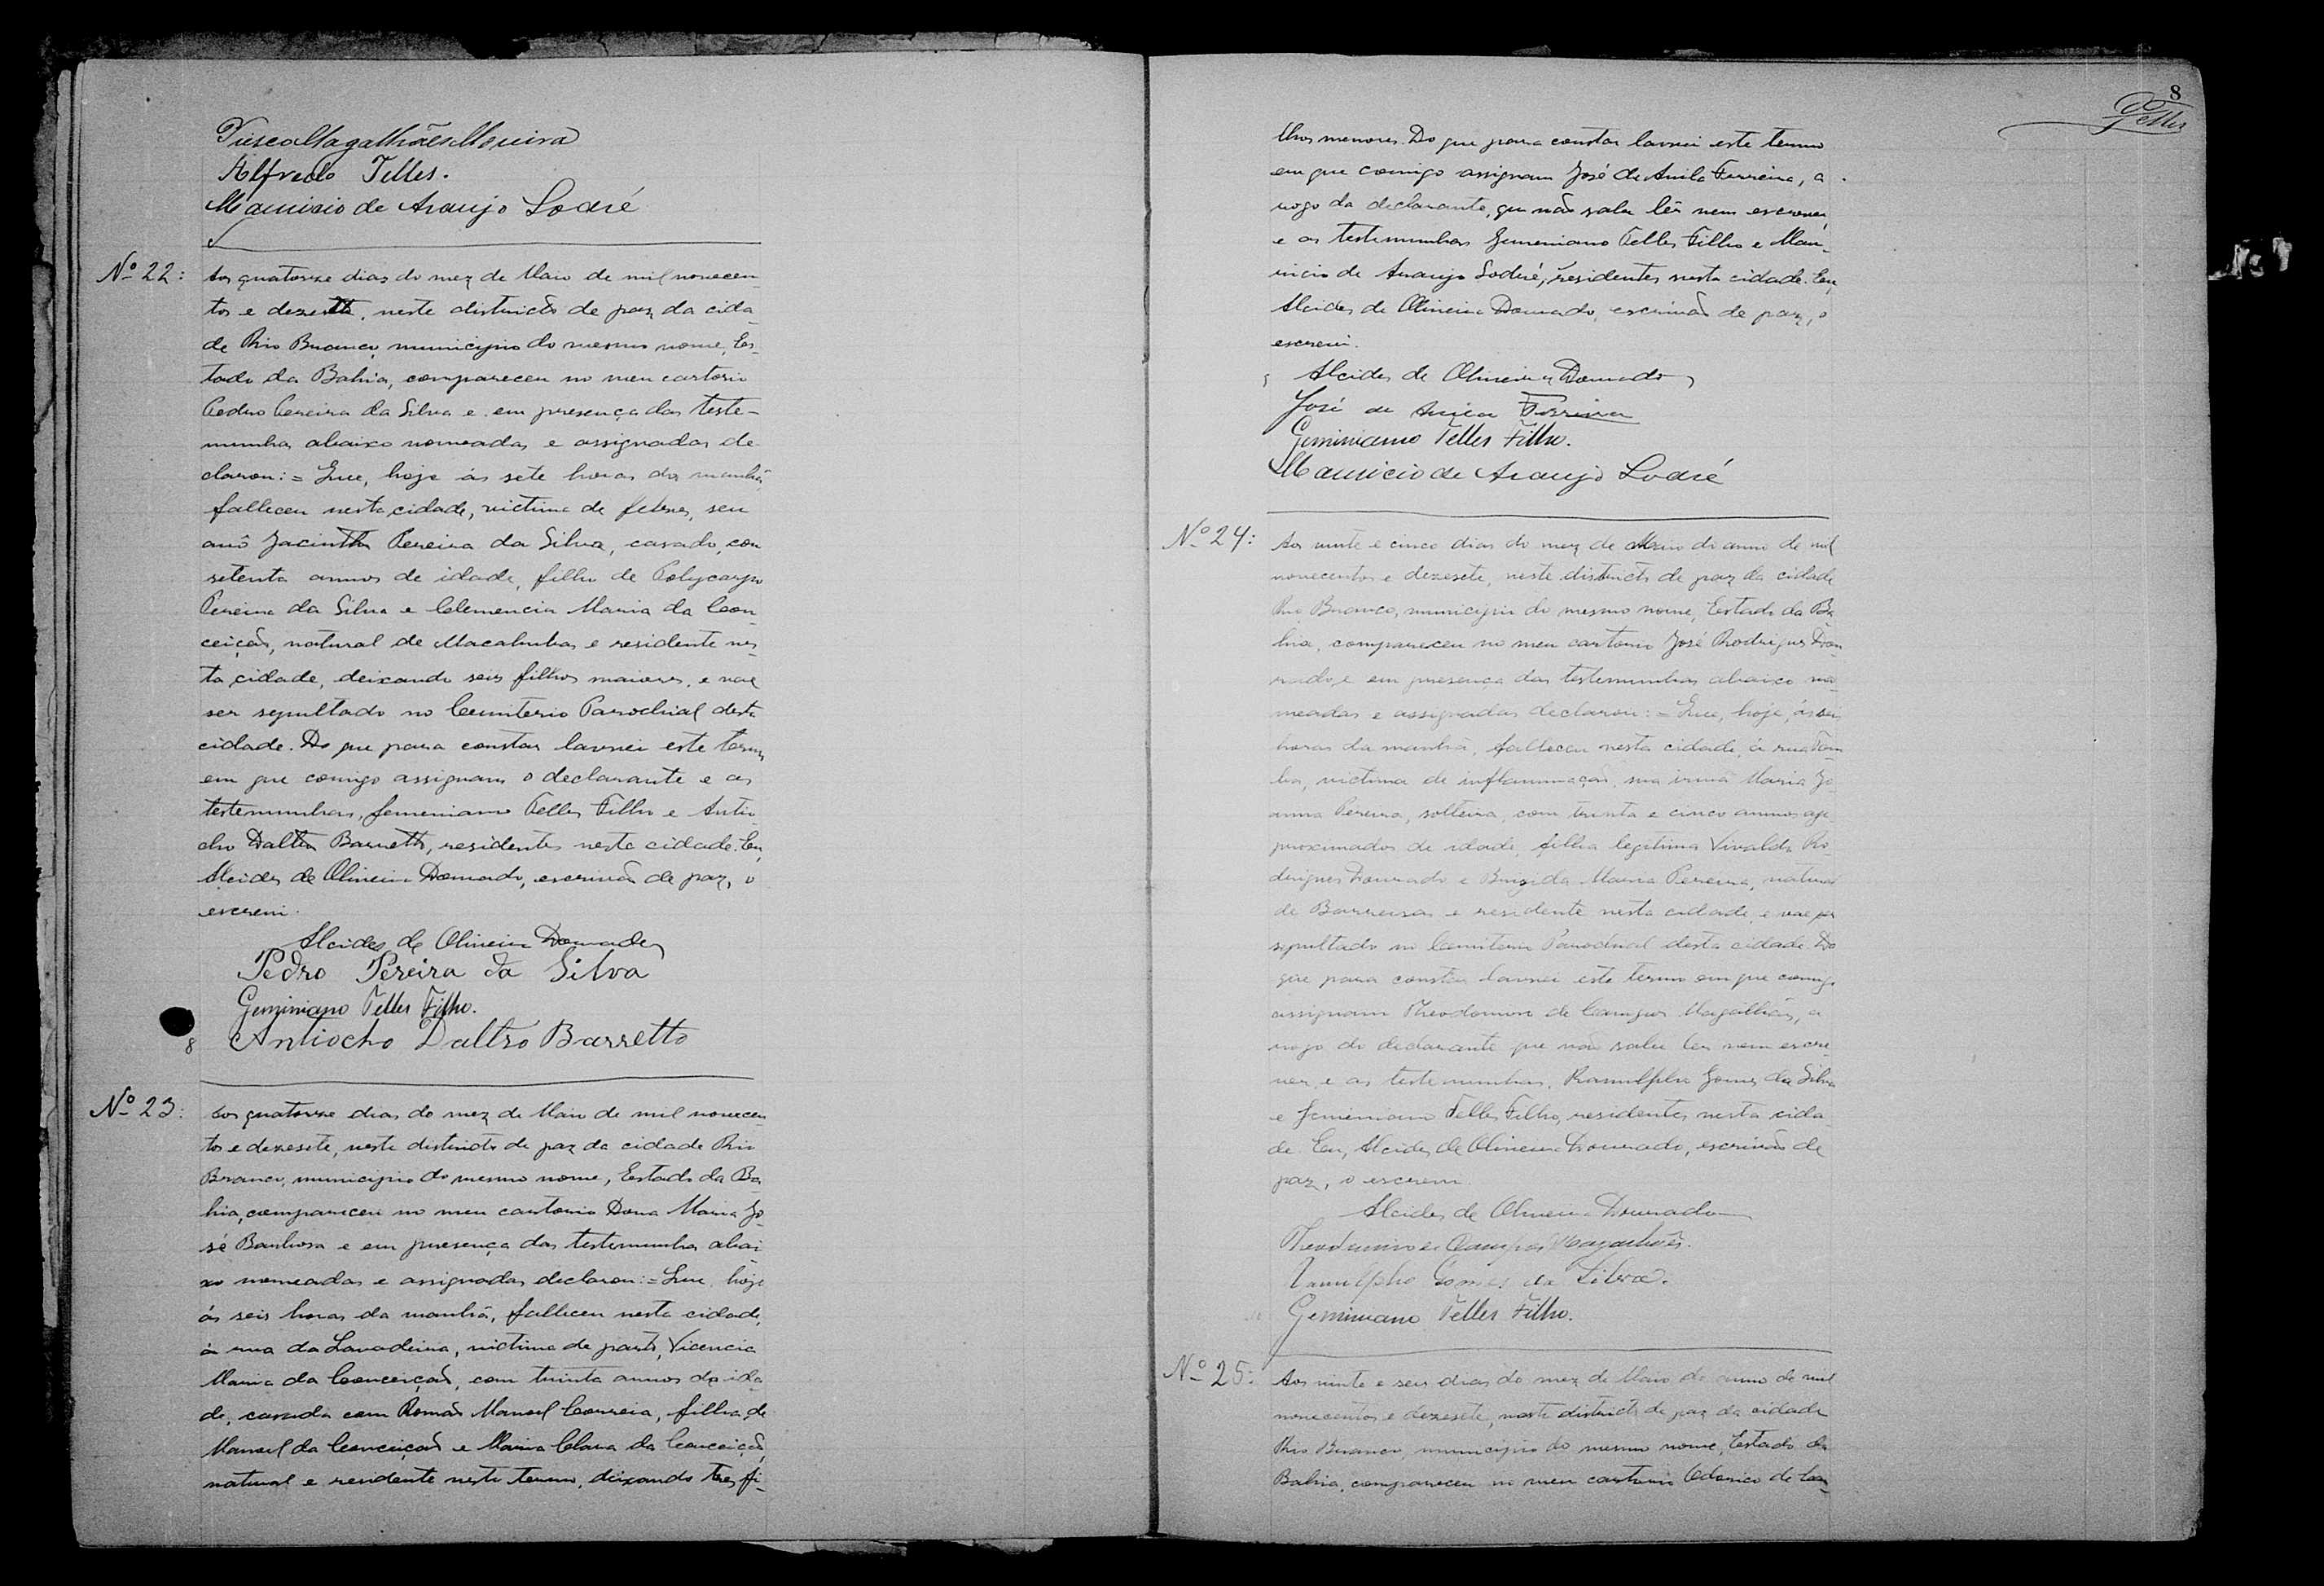 Magalhães Moreira
Alfredo Telles.
Mauricio de Araujo Sodré
Nº 22:
Aos quatorze dias do mez de Maio de mil novecen-
tos e dezesete, neste districto de paz da cida-
de Rio Branco, municipio do mesmo nome, Es-
tado da Bahia, compareceu no meu cartorio
Pedro Pereira da Silva e em presença das teste-
munhas abaixo nomeadas e assignadas de-
clarou: = Que, hoje ás sete horas da manhã,
falleceu nesta cidade, victima de febres, seu
avô Jacintho Pereira da Silva, casado, com
setenta annos de idade, filho de Polycarpo
Pereira da Silva e Clemencia Maria da Con-
ceição, natural de Macahubas e residente nes-
ta cidade, deixando seis filhos maiores, e vae
ser sepultado no Cemiterio Parochial desta
cidade. Do que para constar lavrei este termo
em que comigo assignam o declarante e as
testemunhas, Geminiano Telles Filho e Antio-
cho Daltro Barretto, residentes nesta cidade. Eu,
Alcides de Oliveira Dourado, escrivão de paz, o
escrevi.
Alcides de Oliveira Dourado
Pedro Pereira da Silva
Geminiano Telles Filho.
8
Antiocho Daltro Barretto
Nº 23:
Aos quatorze dias do mez de Maio de mil novecen
tos e dezesete, neste districto de paz da cidade Rio
Branco, municipio do mesmo nome, Estado da Ba-
hia, compareceu no meu cartorio Dona Maria Jo-
sé Barbosa e em presença das testemunhas abai
xo nomeadas e assignadas declarou: = Que, hoje
ás seis horas da manhã, falleceu nesta cidade,
á rua da Lavadeira, victima de parto, Vicencia
Maria da Conceição, com trinta annos de ida-
de, casada com Romão Manoel Correia, filha de
Manoel da Conceição e Maria Clara da Conceição,
natural e residente neste termo, deixando tres fi-
8
Telles
lhos menores. Do que para constar lavrei este termo
em que comigo assignam José de Avila Ferreira, a
rogo da declarante, que não sabe lêr nem escrever,
e as testemunhas Geminiano Telles Filho e Mau-
ricio de Araujo Sodré, residentes nesta cidade. Eu,
Alcides de Oliveira Dourado, escrivão de paz, o
escrevi.
Alcides de Oliveira Dourado
José de Avila Ferreira
Geminiano Telles Filho.
Mauricio de Araujo Sodré
Nº 24:
Aos vinte e cinco dias do mez de Maio do anno de mil
novecentos e dezesete, neste districto de paz da cidade
Rio Branco, municipio do mesmo nome, Estado da Ba-
hia, compareceu no meu cartorio José Rodrigues Dou-
rado, e em presença das testemunhas abaixo no-
meadas e assignadas declarou: = Que, hoje, ás seis
horas da manhã, falleceu nesta cidade, á rua
victima de inflammação, sua irmã Maria Jo-
anna Pereira, solteira, com trinta e cinco annos ap-
proximados de idade, filha legitima Vivaldo Ro-
drigues Dourado e Brigida Maria Pereira, natural
de Barreiras e residente nesta cidade, e vae ser
sepultado no Cemiterio Parochial desta cidade. Do
que para constar lavrei este termo em que comigo
assignam Theodomiro de Campos Magalhães, a
rogo do declarante que não sabe ler nem escre-
ver, e as testemunhas, Ranulpho Gomes da Silva
e Geminiano Telles Filho, residentes nesta cida-
de. Eu, Alcides de Oliveira Dourado, escrivão de
paz, o escrevi.
Alcides de Oliveira Dourado
Theodomiro de Campos Magalhães.
Ranulpho Gomes da Silva.
Geminiano Telles Filho.
Nº 25:
Aos vinte e seis dias do mez de Maio do anno de mil
novecentos e dezesete, neste districto de paz da cidade
Rio Branco, municipio do mesmo nome, Estado da
Bahia, compareceu no meu cartorio